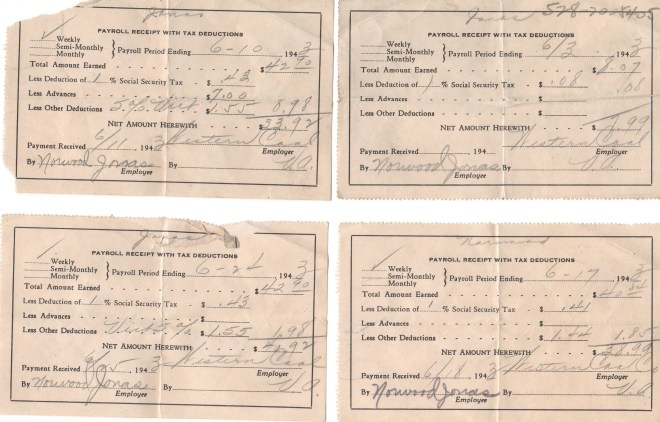 Jonas
PAYROLL RECEIPT WITH TAX DEDUCTIONS
Weekly
Semi-Monthly
Monthly
Payroll Period Ending 6-10 1943
Total Amount Earned $ 42.90
Less Deduction of 1 % Social Security Tax $ .43
Less Advances $ 7.00
Less Other Deductions 1.55 8.98
NET AMOUNT HEREWITH $ 33.92
Payment Received 6/11 1943 Western Coal
Employer
By Norwood Jonas By
Employee
Jonas 528-20-8405
PAYROLL RECEIPT WITH TAX DEDUCTIONS
Weekly
Semi-Monthly
Monthly
Payroll Period Ending 6/3 1943
Total Amount Earned $ 8.07
Less Deduction of 1 % Social Security Tax $ .08 .08
Less Advances $
Less Other Deductions $
NET AMOUNT HEREWITH $ 7.99
Payment Received 194 Western Coal
Employer
By Norwood Jonas By
Employee
Jonas
PAYROLL RECEIPT WITH TAX DEDUCTIONS
Weekly
Semi-Monthly
Monthly
Payroll Period Ending 6-24 1943
Total Amount Earned $ 42.90
Less Deduction of 1 % Social Security Tax $ .43
Less Advances $
Less Other Deductions 1.55 1.98
NET AMOUNT HEREWITH $
Payment Received 6/25 1943 Western Coal
Employer
By Norwood Jonas By
Employee
Norwood
PAYROLL RECEIPT WITH TAX DEDUCTIONS
Weekly
Semi-Monthly
Monthly
Payroll Period Ending 6-17 1943
Total Amount Earned $ 40.84
Less Deduction of 1 % Social Security Tax $ .41
Less Advances $
Less Other Deductions $ 1.44 1.85
NET AMOUNT HEREWITH $
Payment Received 6/18 1943 Western Coal Co
Employer
By Norwood Jonas By
Employee